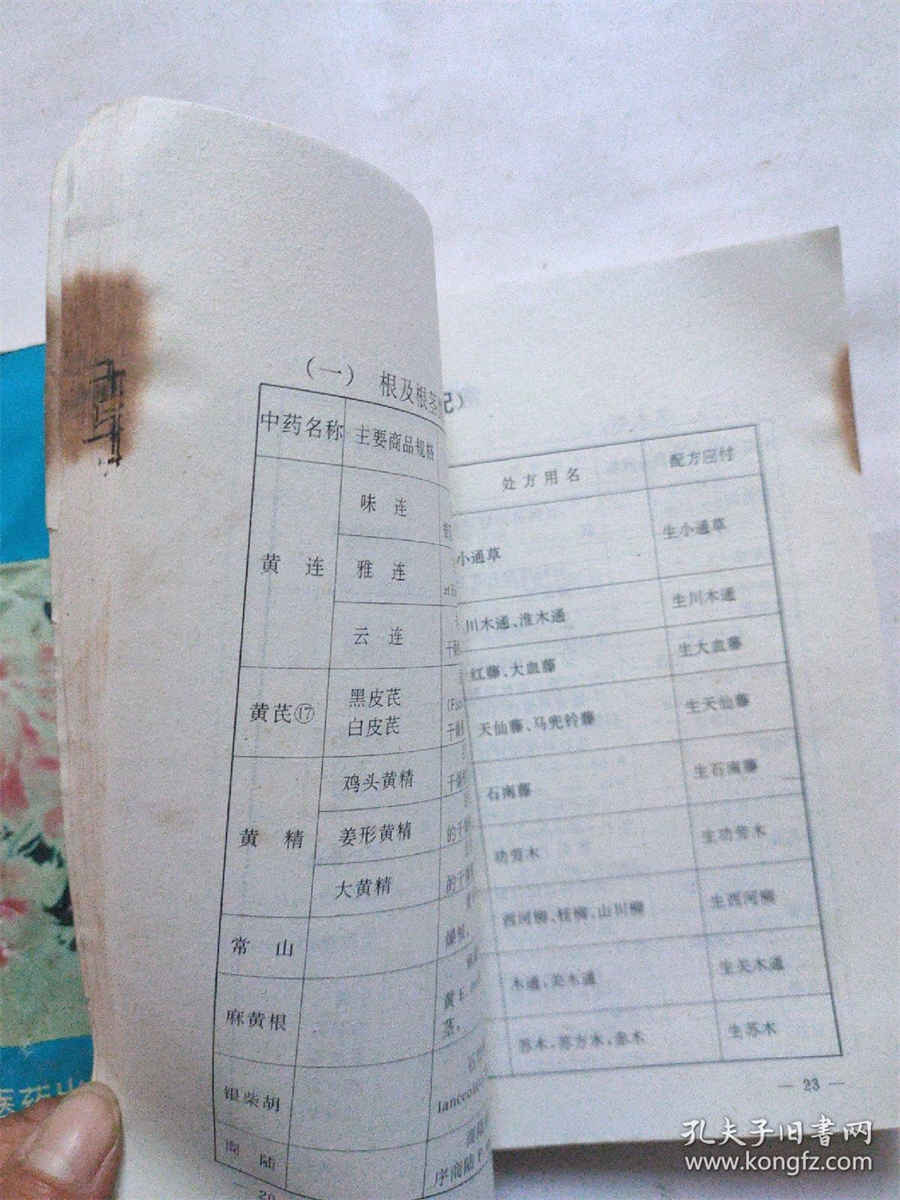 (一) 根及根茎
中药名称 主要商品规格
黄连 味连
雅连
云连
黄芪⑰ 黑皮芪
白皮芪
黄精 鸡头黄精
干
姜形黄精
的干
大黄精
的干
常山
麻黄根
茎,
银柴胡
lanceola
商陆
序商陆
20
处方用名 配方应付
小通草 生小通草
川木通、淮木通 生川木通
红藤、大血藤 生大血藤
天仙藤、马兜铃藤 生天仙藤
石南藤 生石南藤
功劳木 生功劳木
西河柳、柽柳、山川柳 生西河柳
木通、关木通 生关木通
苏木、苏方木 生苏木
— 23 —
孔夫子旧书网
www.kongfz.com